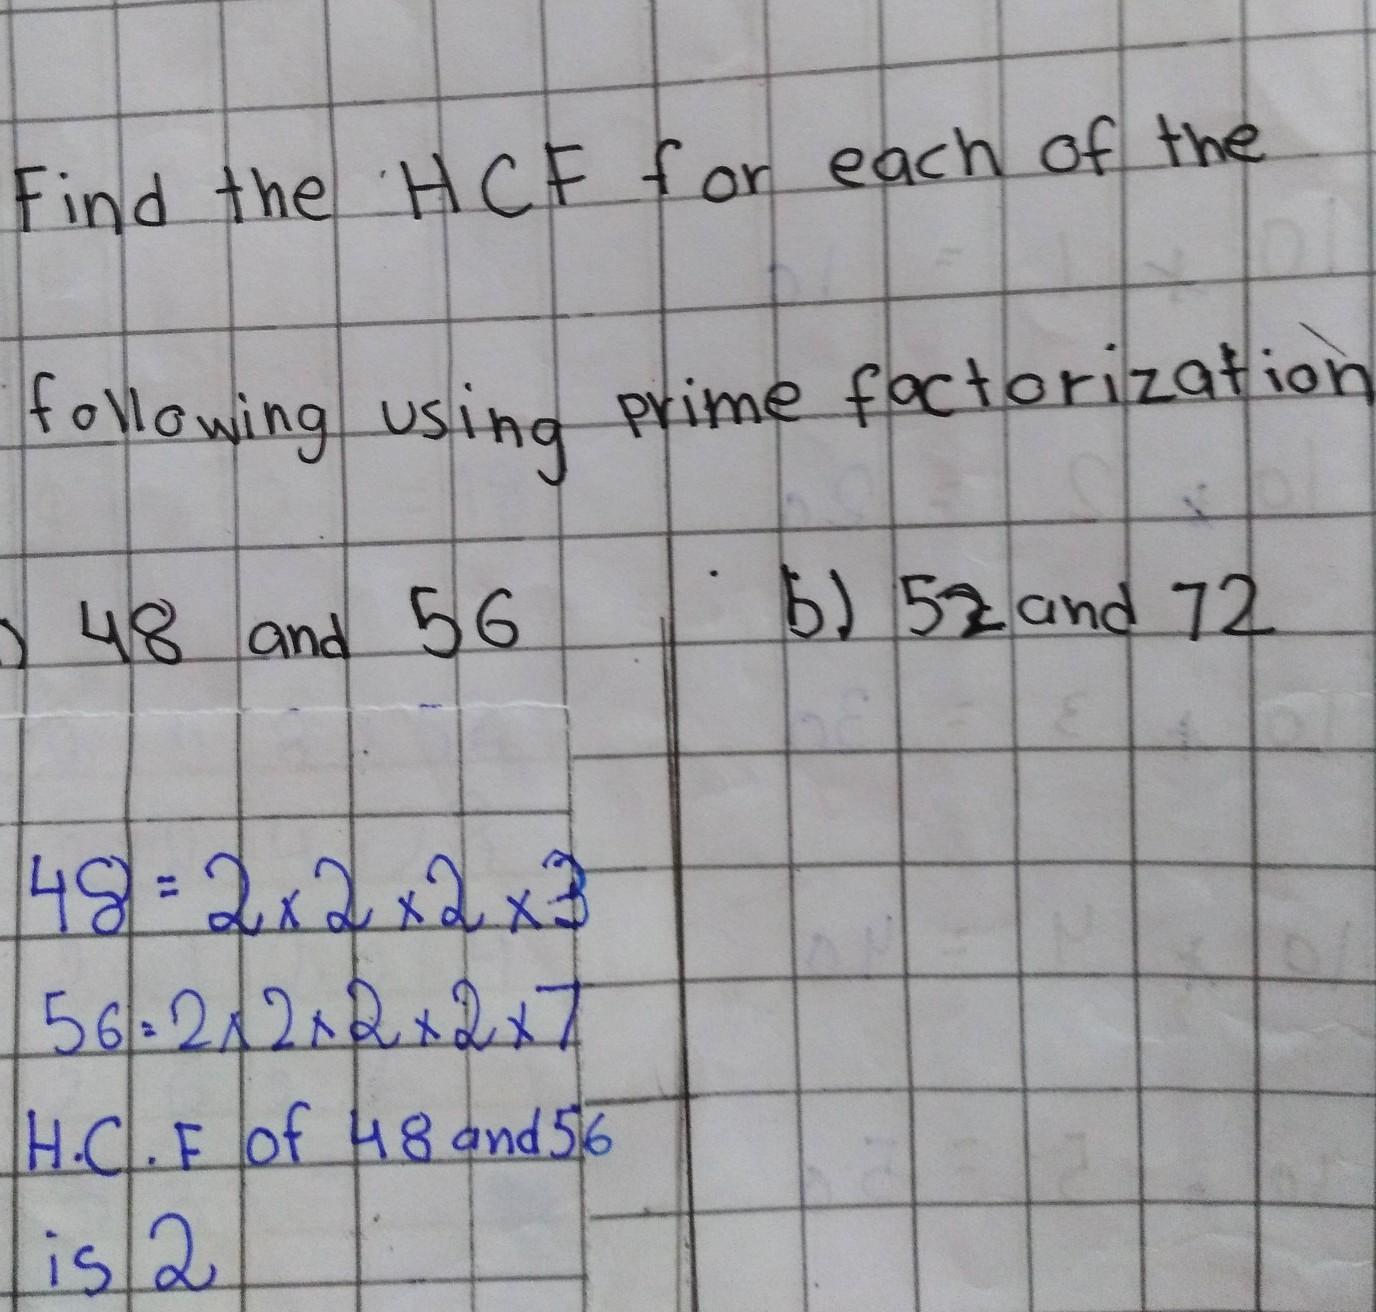 Find the HCF for each of the
following using prime factorization
) 48 and 56 b) 52 and 72
48 = 2 x 2 x 2 x 3
56 = 2 x 2 x 2 x 2 x 7
H.C.F of 48 and 56
is 2